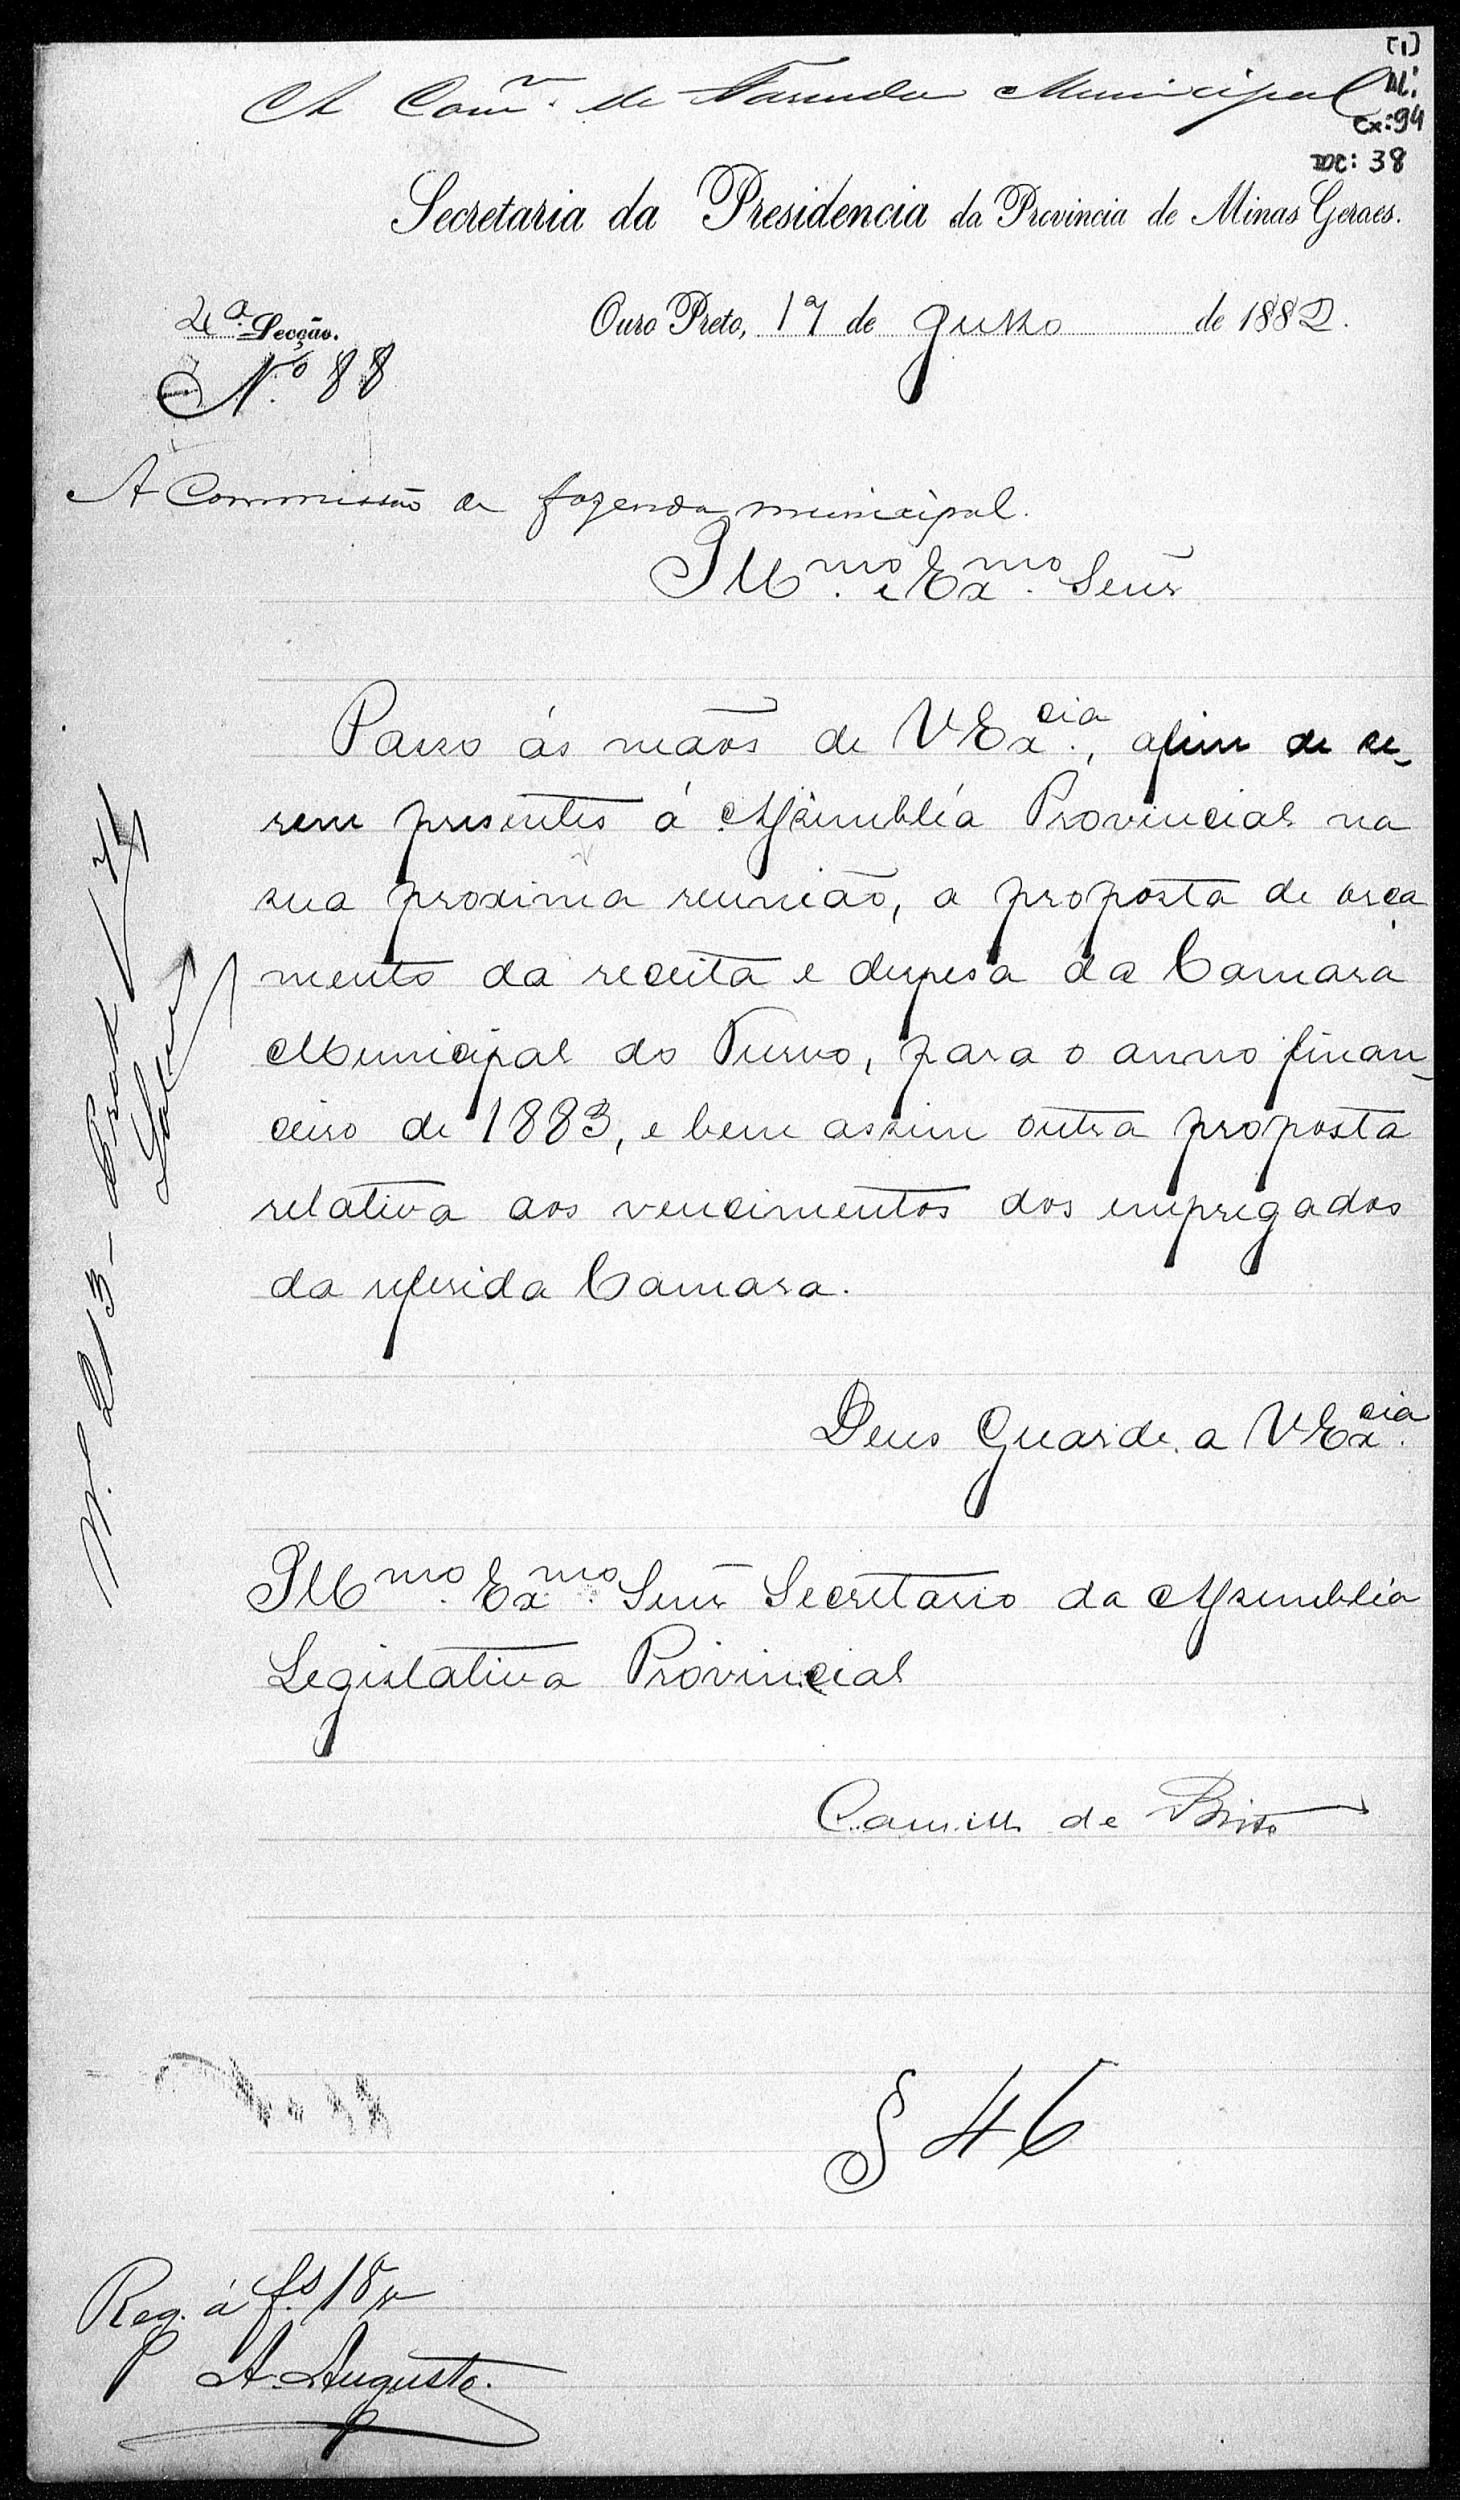 [1]
M:
Cx: 94
DOC: 38
A Com.m de Fazenda Municipal
Secretaria da Presidencia da Provincia de Minas Geraes.
Ouro Preto, 17 de Julho de 1882.
2a. Secção.
No. 88
A Commissão de fazenda municipal.
Illmo. e Exmo. Senr
Passo ás mãos de VExcia., afim de se-
rem presentes á Assembléa Provincial na
sua proxima reunião, a proposta de orça
mento da receita e despesa da Camara
Municipal do Turvo, para o anno finan-
ceiro de 1883, e bem assim outra proposta
relativa aos vencimentos dos empregados
da referida Camara.
Deus Guarde a VExcia.
Illmo. Exmo. Senr Secretario da Assembléa
Legislativa Provincial
Camillo de Brito
N.o 213-
§ 46
Reg. á fs. 18
A. Augusto.